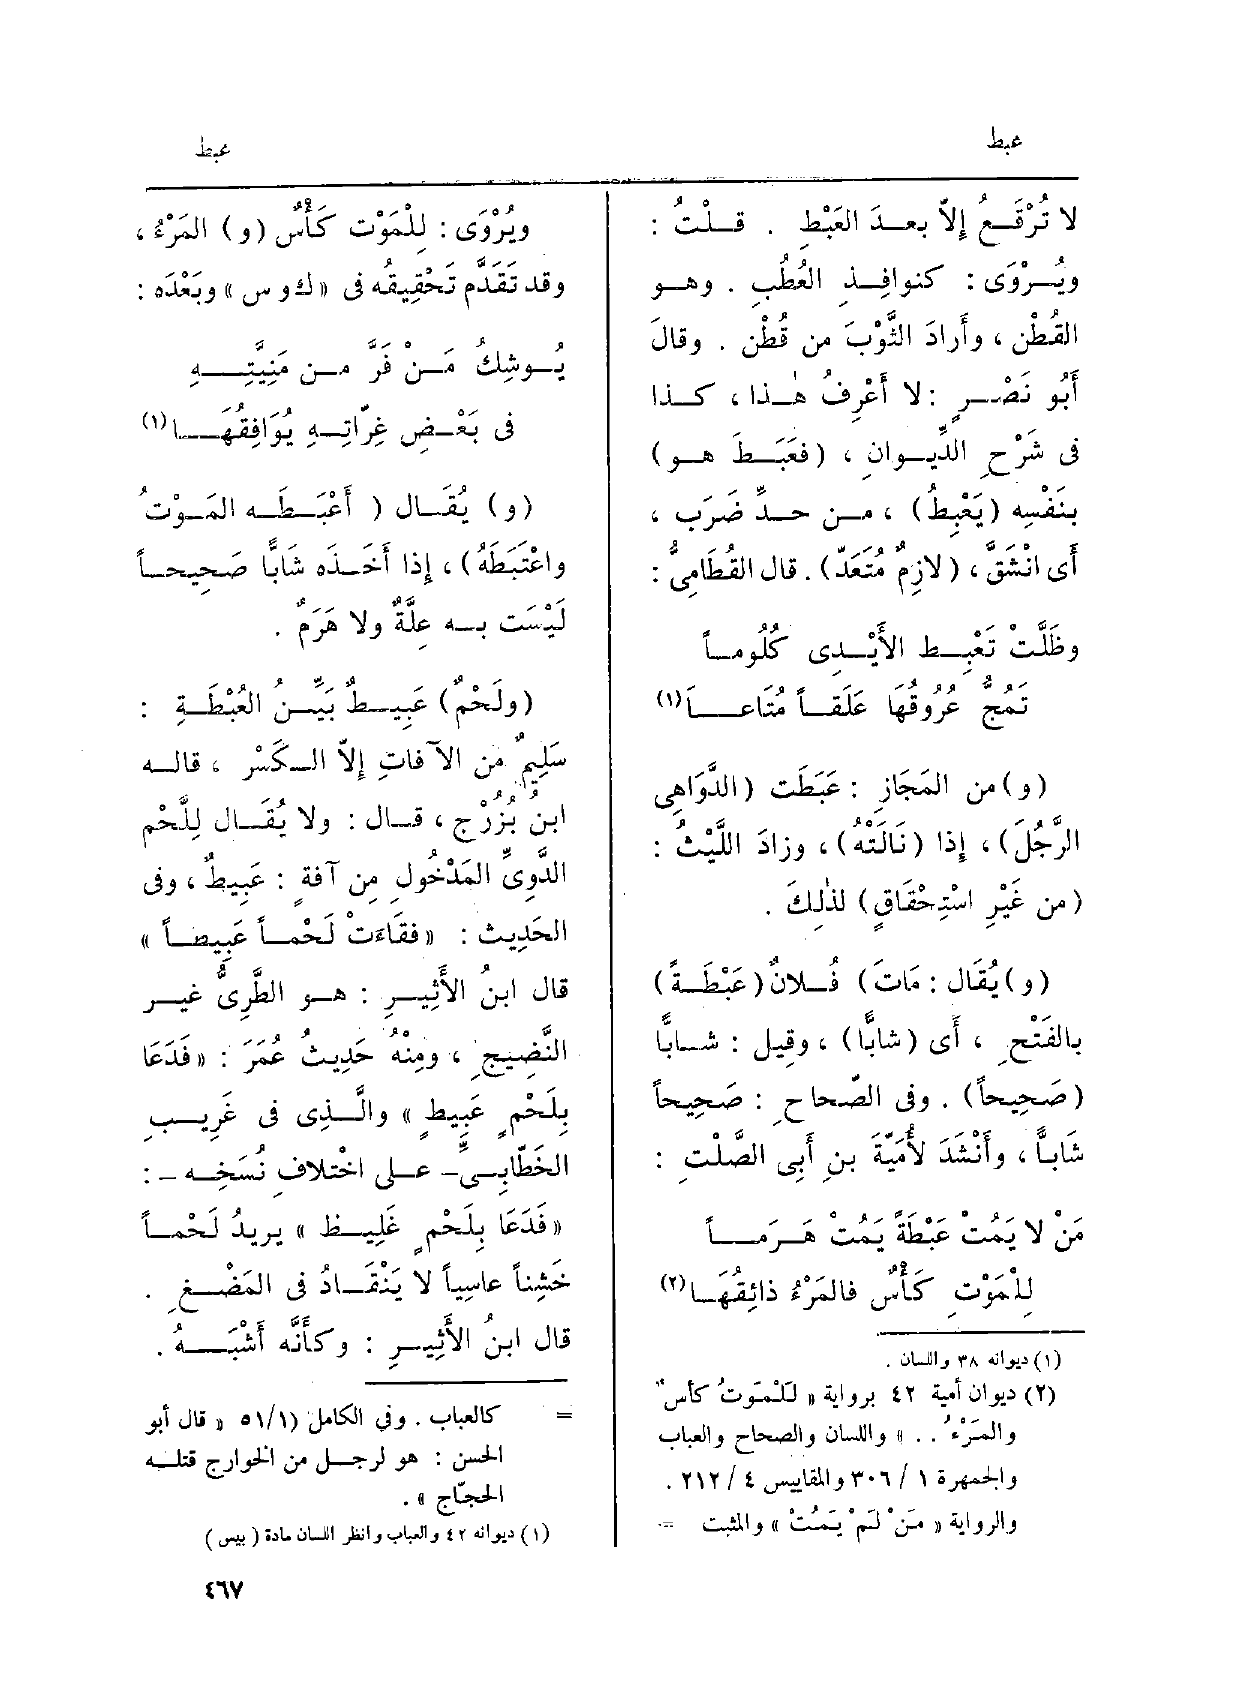 عبط
عبط
لا تُرْقَعُ إلاّ بعدَ العَبْطِ . قلْتُ :
ويُرْوَى : كنوافِذِ العُطُبِ . وهو
القُطْن ، وأَرادَ الثَّوْبَ من قُطْن . وقالَ
أَبُو نَصْرٍ : لا أَعْرِفُ هٰذا ، كذا
فى شَرْحِ الدِّيوانِ ، (فعَبَطَ هو)
بنفْسِه (يَعْبِطُ) ، من حدِّ ضَرَب ،
أَى انْشَقَّ ، (لازِمٌ مُتَعَدّ) . قال القُطَامِىُّ :
وظَلَّتْ تَعْبِط الأَيْدِى كُلُوماً
تَمُجُّ عُرُوقُهَا عَلَقاً مُتَاعَا (١)
(و) من المَجَازِ : عَبَطَت (الدَّوَاهِى
الرَّجُلَ) ، إذا (نَالَتْهُ) ، وزادَ اللَّيْثُ :
(من غَيْرِ اسْتِحْقَاقٍ) لذٰلِكَ .
(و) يُقَال : مَاتَ) فُلانٌ (عَبْطَةً)
بالفَتْحِ ، أَى (شابًّا) ، وقِيل : شَابًّا
(صَحِيحاً) . وفى الصّحاحِ : صَحِيحاً
شَابًّا ، وأَنْشَدَ لأُمَيَّةَ بنِ أَبِى الصَّلْتِ :
مَنْ لا يَمُتْ عَبْطَةً يَمُتْ هَرَمَاً
لِلْمَوْتِ كَأْسٌ فالمَرْءُ ذائِقُهَا (٢)
(١) ديوانه ٣٨ واللسان .
(٢) ديوان أمية ٤٢ برواية « لَلْمَوتُ كأس ٌ
والمَرْءُ . . » واللسان والصحاح والعباب
والجمهرة ١ / ٣٠٦ والمقاييس ٤ / ٢١٢ .
والرواية « مَنْ لَمْ يَمُتْ » والمثبت =
ويُرْوَى : لِلْمَوْت كَأْسٌ (و) المَرْءُ ،
وقد تَقَدَّم تَحْقِيقُه فى « ك و س » وبَعْدَه :
يُوشِكُ مَنْ فَرَّ من مَنِيَّتِهِ
فى بَعْضِ غِرَّاتِهِ يُوَافِقُهَا (١)
(و) يُقَال ( أَعْبَطَه المَوْتُ
واعْتَبَطَهُ) ، إذا أَخَذه شَابًّا صَحِيحاً
لَيْسَت به عِلَّةٌ ولا هَرَمٌ .
(ولَحْمٌ) عَبِيطٌ بَيِّنُ العُبْطَةِ :
سَلِيمٌ من الآفَاتِ إلاّ الكَسْر ، قاله
ابنُ بُزُرْج ، قال : ولا يُقَال لِلَّحْم
الدَّوِىِّ المَدْخُولِ مِن آفَةٍ : عَبِيطٌ ، وفى
الحَدِيث : « فقَاءَتْ لَحْماً عَبِيطاً »
قال ابنُ الأَثِيرِ : هو الطَّرِىُّ غير
النَّضِيجِ ، ومِنْهُ حَدِيثُ عُمَرَ : « فَدَعَا
بِلَحْمٍ عَبِيطٍ » والَّذِى فى غَرِيبِ
الخَطَّابِىِّ – على اخْتلافِ نُسَخِه – :
« فَدَعَا بِلَحْمٍ غَلِيظ » يريدُ لَحْماً
خَشِناً عاسِياً لا يَنْقَادُ فى المَضْغِ .
قال ابنُ الأَثِيرِ : وكأَنَّه أَشْبَهُ .
= كالعباب . وفي الكامل (١/٥١ « قال أبو
الحسن : هو لرجل من الخوارج قتله
الحجّاج » .
(١) ديوانه ٤٢ والعباب وانظر اللسان مادة ( بيس )
٤٦٧